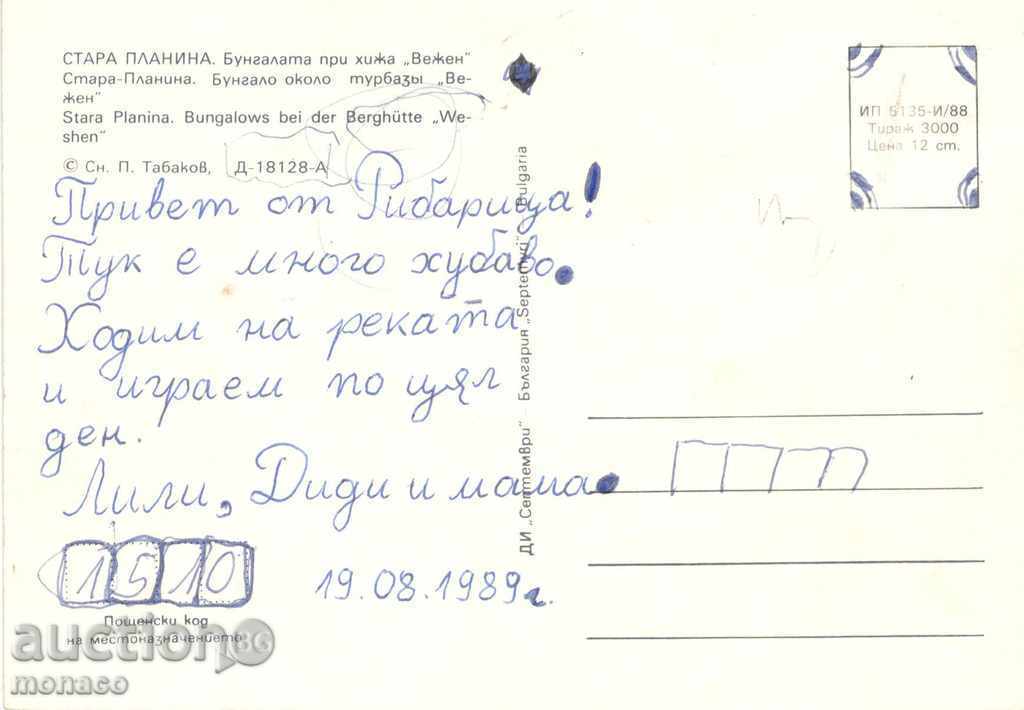 СТАРА ПЛАНИНА. Бунгалата при хижа „Вежен"
Стара-Планина. Бунгало около турбазы „Ве-
жен"
Stara Planina. Bungalows bei der Berghütte „We-
shen"
© Сн. П. Табаков, Д-18128-А
Привет от Рибарица!
Тук е много хубаво.
Ходим на реката
и играем по цял
ден.
Лили, Диди и мама.
1510
19.08.1989 г.
Пощенски код
на местоназначението
ДИ „Септември" – България „Septemvri" Bulgaria
ИП 5135-И/88
Тираж 3000
Цена 12 ст.
auction86
monaco